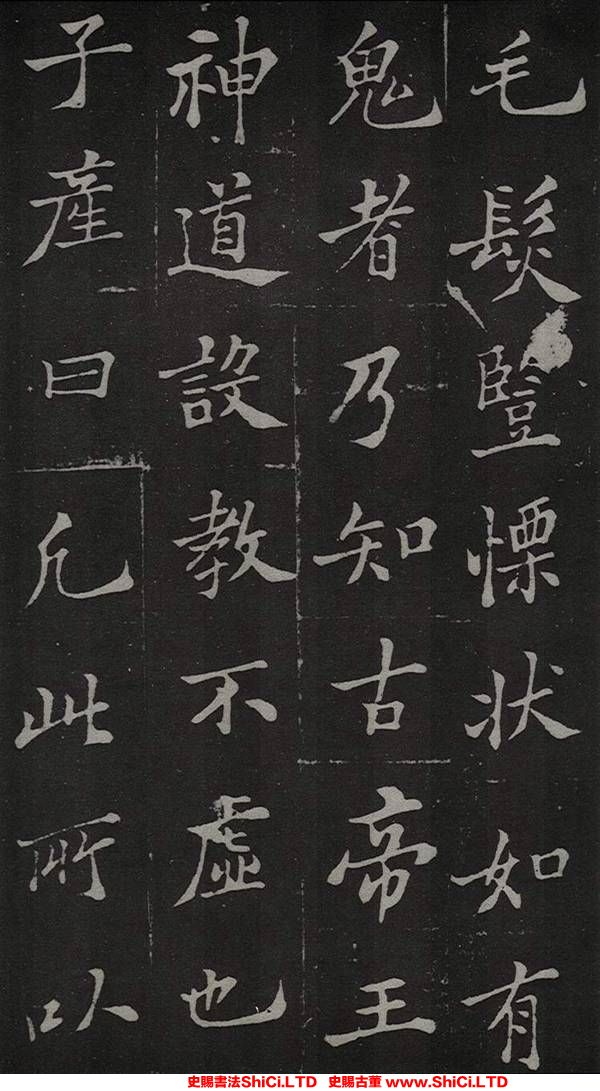 毛髮豎慄状如有
鬼者乃知古帝王
神道設教不虛也
子產曰凡此所以
史賜書法ShiCi.LTD 史賜古董 www.ShiCi.LTD